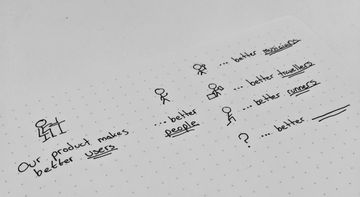 Our product makes
better users
... better
people
... better musicians
... better travellers
... better runners
? ... better ___